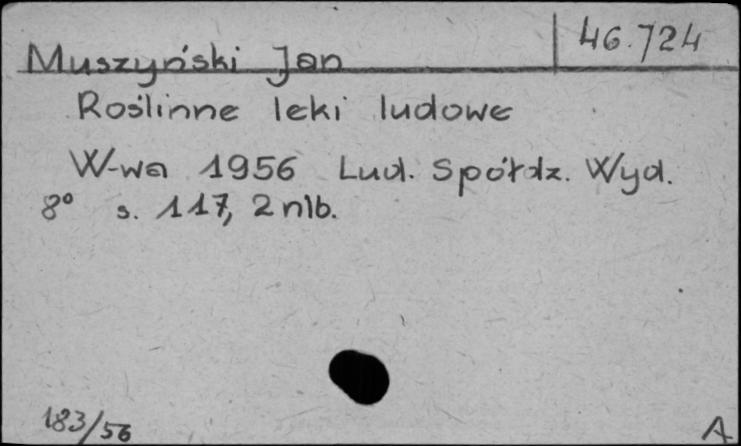 46.724
Muszyński Jan
Roślinne leki ludowe
W-wa 1956 Lud. Spółdz. Wyd.
8° s. 117, 2 nlb.
183/56
A